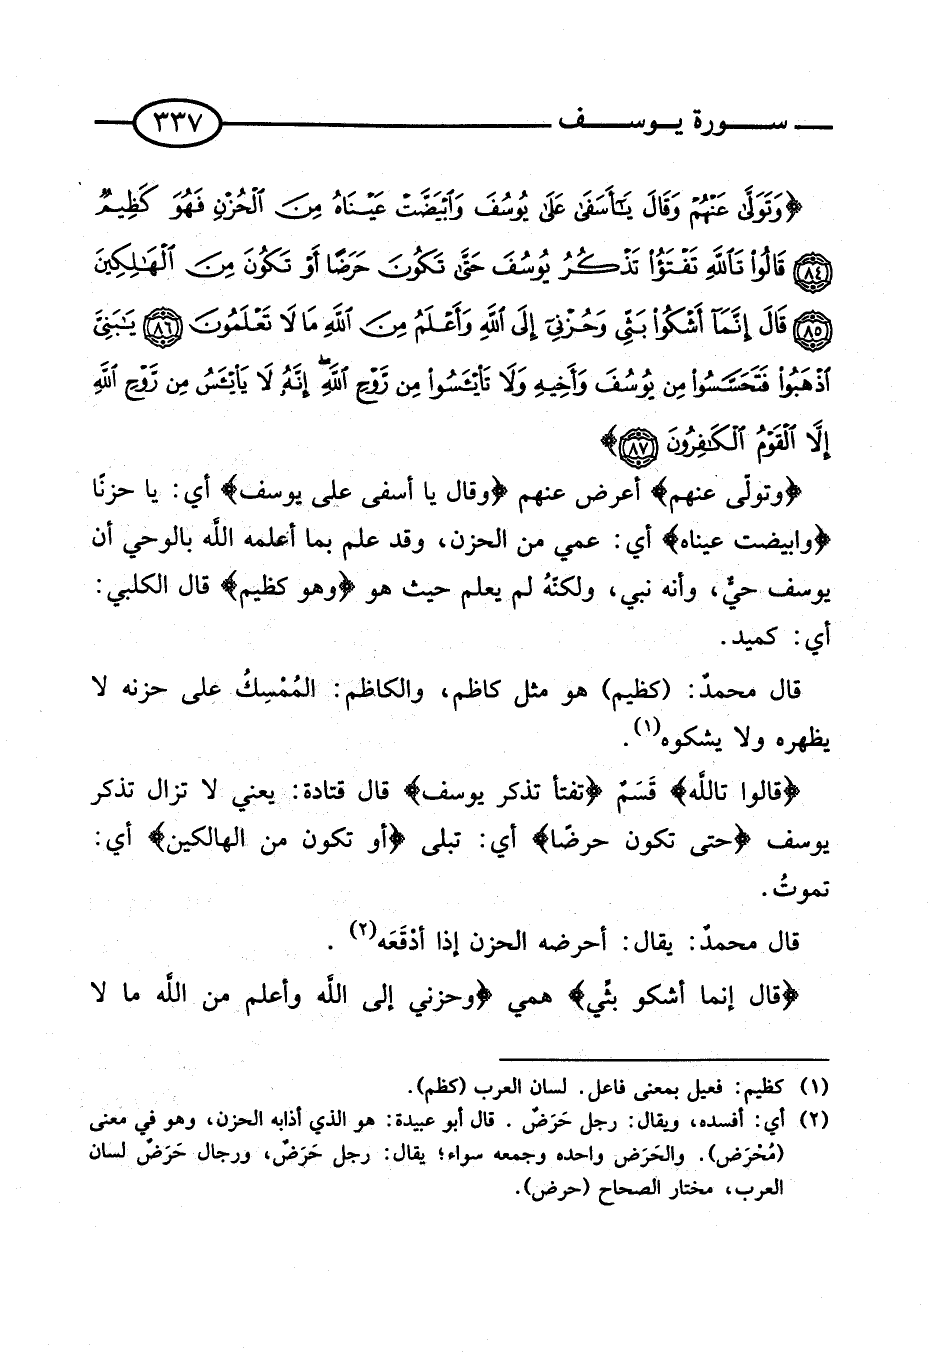 سورة يوسف ٣٣٧
﴿وَتَوَلَّىٰ عَنْهُمْ وَقَالَ يَٰٓأَسَفَىٰ عَلَىٰ يُوسُفَ وَٱبْيَضَّتْ عَيْنَاهُ مِنَ ٱلْحُزْنِ فَهُوَ كَظِيمٌ
٨٤ قَالُوا۟ تَٱللَّهِ تَفْتَؤُا۟ تَذْكُرُ يُوسُفَ حَتَّىٰ تَكُونَ حَرَضًا أَوْ تَكُونَ مِنَ ٱلْهَٰلِكِينَ
٨٥ قَالَ إِنَّمَآ أَشْكُوا۟ بَثِّى وَحُزْنِىٓ إِلَى ٱللَّهِ وَأَعْلَمُ مِنَ ٱللَّهِ مَا لَا تَعْلَمُونَ ٨٦ يَٰبَنِىَّ
ٱذْهَبُوا۟ فَتَحَسَّسُوا۟ مِن يُوسُفَ وَأَخِيهِ وَلَا تَا۟يْـَٔسُوا۟ مِن رَّوْحِ ٱللَّهِ ۖ إِنَّهُۥ لَا يَا۟يْـَٔسُ مِن رَّوْحِ ٱللَّهِ
إِلَّا ٱلْقَوْمُ ٱلْكَٰفِرُونَ ٨٧﴾
﴿وتولّى عنهم﴾ أعرض عنهم ﴿وقال يا أسفى على يوسف﴾ أي: يا حزنًا
﴿وابيضت عيناه﴾ أي: عمي من الحزن، وقد علم بما أعلمه اللَّه بالوحي أن
يوسف حيٌّ، وأنه نبي، ولكنّهُ لم يعلم حيث هو ﴿وهو كظيم﴾ قال الكلبي:
أي: كميد.
قال محمدٌ: (كظيم) هو مثل كاظم، والكاظم: المُمْسِكُ على حزنه لا
يظهره ولا يشكوه(١).
﴿قالوا تاللَّه﴾ قَسَمٌ ﴿تفتأ تذكر يوسف﴾ قال قتادة: يعني لا تزال تذكر
يوسف ﴿حتى تكون حرضًا﴾ أي: تبلى ﴿أو تكون من الهالكين﴾ أي:
تموتُ.
قال محمدٌ: يقال: أحرضه الحزن إذا أدْقَعَه(٢) .
﴿قال إنما أشكو بثِّي﴾ همي ﴿وحزني إلى اللَّه وأعلم من اللَّه ما لا
(١) كظيم: فعيل بمعنى فاعل. لسان العرب (كظم).
(٢) أي: أفسده، ويقال: رجل حَرَضٌ . قال أبو عبيدة: هو الذي أذابه الحزن، وهو في معنى
(مُحْرَض). والحَرَض واحده وجمعه سواء؛ يقال: رجل حَرَضٌ، ورجال حَرَضٌ لسان
العرب، مختار الصحاح (حرض).